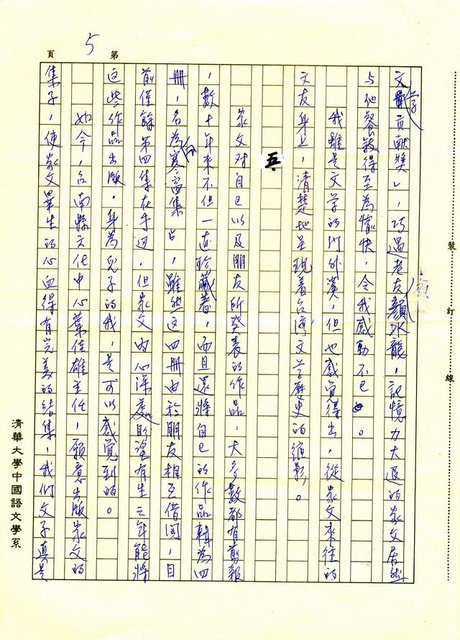 第 5 頁
文學貢獻獎」,巧遇老友顏水龍,記憶力大退的家父居然
與他參敘得至為愉快,令我感動不已。
我雖是文學的門外漢,但也感覺得出,從家父來往的
文友身上,清楚地呈現着台灣文學歷史的縮影。
五
家父對自己以及朋友所發表的作品,大多數都有剪報
,數十年來不但一直珍藏著,而且還將自己的作品輯為四
冊,名為「寒窗集」,雖然這四冊由於朋友相互借閱,目
前僅餘第四集在手邊,但家父內心深處盼望有生之年能將
這些作品出版,身為兒子的我,是可以感覺到的。
如今,台南縣文化中心葉佳雄主任,願意出版家父的
集子,使家父畢生的心血得有完美的結集,我們父子真是
裝
訂
線
清華大學中國語文學系